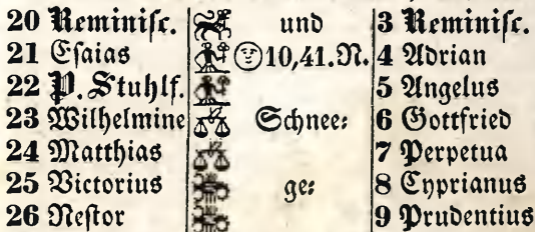 20 Reminisc. und 3 Reminisc.
21 Esaias 10,41.N. 4 Adrian
22 P. Stuhlf. 5 Angelus
23 Wilhelmine Schnee: 6 Gottfried
24 Matthias 7 Perpetua
25 Victorius ge: 8 Cyprianus
26 Nestor 9 Prudentius